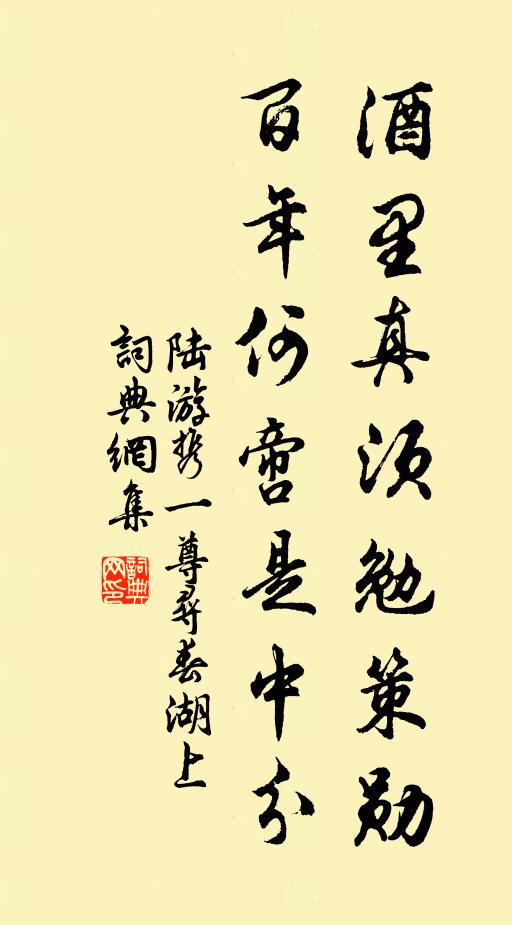 酒里真须勉策勋
百年何啻是中分
陆游携一尊寻春湖上
詞典網集
詞典网印